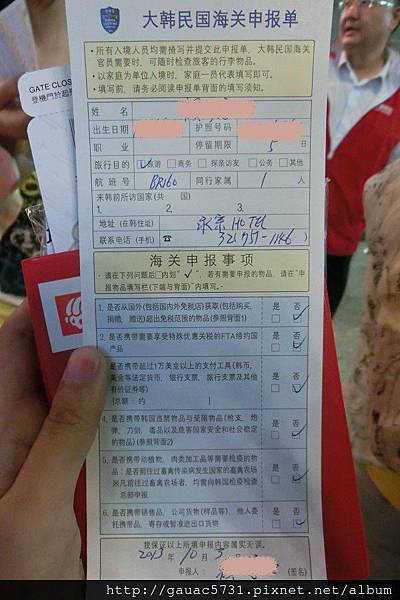 大韩民国海关申报单
·所有入境人员均需填写并提交此申报单,大韩民国海关
官员需要时,可随时检查旅客的行李物品。
·以家庭为单位入境时,家庭一员代表填写即可。
·填写前,请务必阅读申报单背面的填写须知。
GATE CLOS
登機門於起
姓 名
出生日期 护照号码
职 业 停留期限 5 日
旅行目的 ☑旅游 □商务 □探亲访友 □公务 □其他
航班号 BR160 同行家属 1 人
来韩前所访国家(共 国)
1. 2. 3.
地址(在韩住址) HOTEL
联系电话(手机) ☎ )
海关申报事项
·请在下列问题后□内划"✓",若有需要申报的物品,请在"申
报物品填写栏(下端与背面)"内填写。
1. 是否从国外(包括国内外免税店)获取(包括购买, 是 否
捐赠, 赠送)超出免税范围的物品(参照背面1) □ ☑
2. 是否携带需要享受特殊优惠关税的FTA缔约国 是 否
产品 □ ☑
3. 是否携带超过1万美金以上的支付工具(韩币, 是 否
美金等法定货币, 银行支票, 旅行支票及其他 □ ☑
有价证券等)
(总额:约 )
4. 是否携带韩国违禁物品与受限物品(枪支, 炮 是 否
弹, 刀剑, 毒品以及危害国家安全和社会稳定 □ ☑
的物品)(参照背面2)
5. 是否携带动植物, 肉类加工品等需要检疫的物 是 否
品;是否前往过畜禽传染病发生国家的畜禽农场 □ ☑
※凡前往过畜禽农场者, 均需向韩国检疫检查
总部申报
6. 是否携带销售品, 公司货物(样品等), 他人委 是 否
托携带品, 寄存或暂准进出口货物 □ ☑
我保证以上所填申报内容属实无误。
2013 年 10 月 日
申报人: (签名)
http://gauac5731.pixnet.net/album